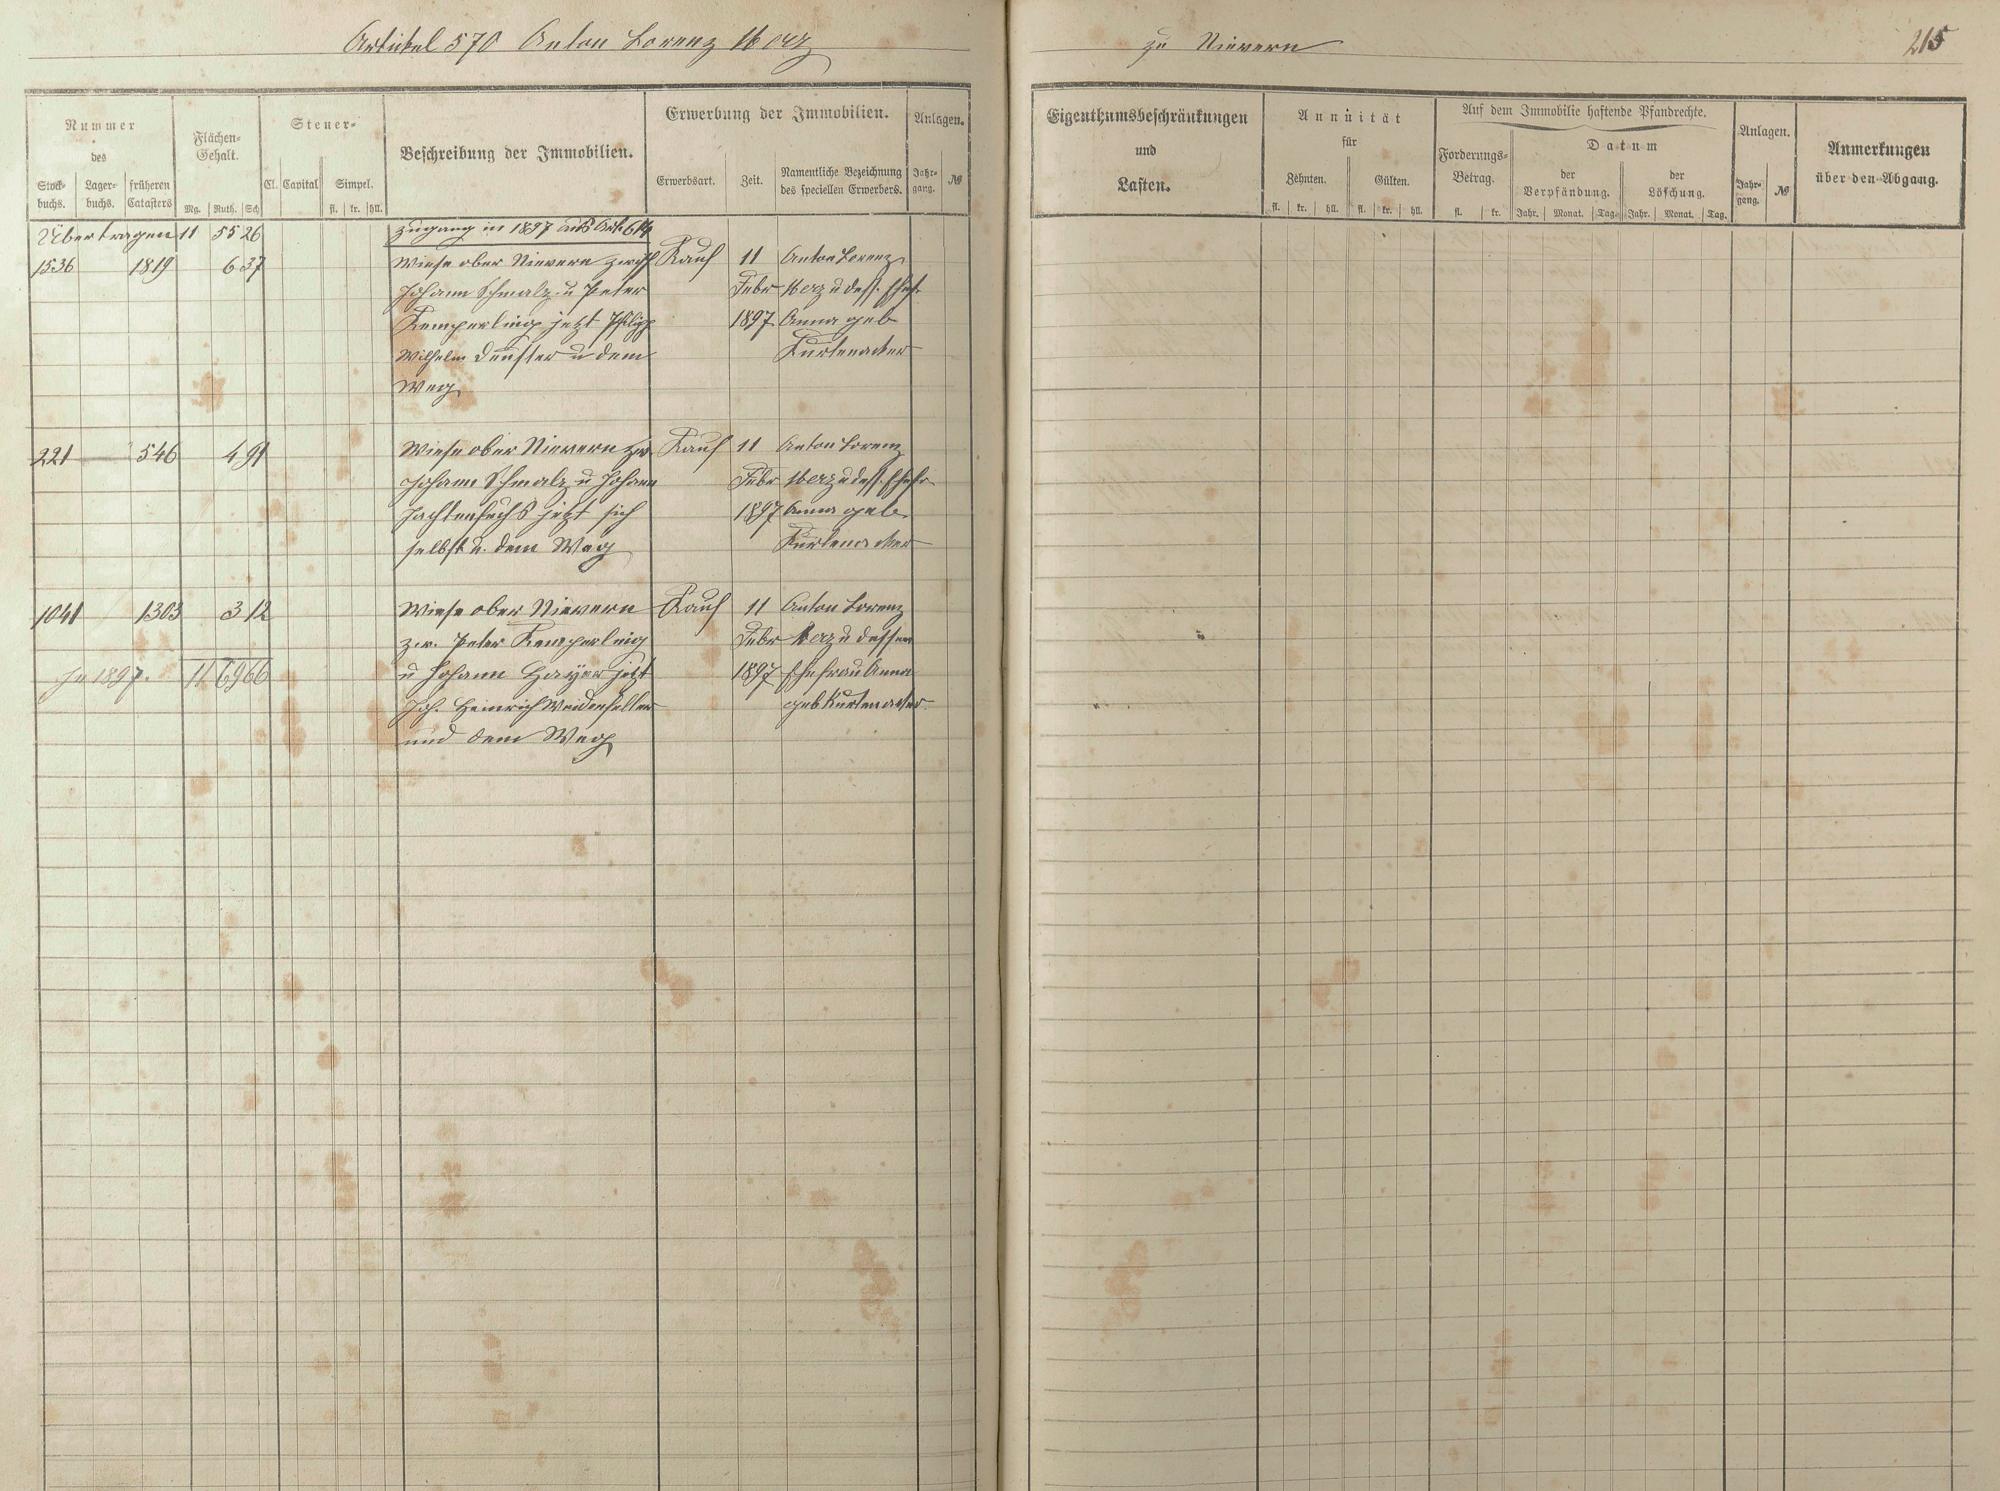 Artikel 570 Anton Lorenz
zu Nievern
215
Nummer
des
Stock-
buchs.
Lager-
buchs.
früheren
Catasters
Flächen-
Gehalt.
Mg. Ruth. Sch
Steuer-
Cl. Capital Simpel.
fl. kr. hll.
Beschreibung der Immobilien.
Erwerbung der Immobilien.
Erwerbsart. Zeit.
Namentliche Bezeichnung
des speciellen Erwerbers.
Anlagen.
Jahr-
gang.
№
Übertragen 11 55 26
zugang in 1897 aus Art. 614
1536 1819 6 37 Wiese ober Nievern zwisch Kauf 11 Anton Lorenz
Johann Schmalz u Peter Febr u dess. Ehefr.
Kemperling jetzt Philipp 1897 Anna geb
Wilhelm u dem Kurtenacker
Weg
221 546 4 91 Wiese ober Nievern zw. Kauf 11 Anton Lorenz
Johann Schmalz u Johann Febr u dess. Ehefr.
Hachtenfuchs jetzt sich 1897 Anna geb.
selbst u. dem Weg Kurtenacker
1041 1303 3 12 Wiese ober Nievern Kauf 11 Anton Lorenz
zw. Peter Kemperling Febr u dessen
In 1897. 11 69 66 u Johann Hayer jetzt 1897 Ehefrau Anna
Joh. Heinrich Weidenfeller geb Kurtenacker
und dem Weg
Eigenthumsbeschränkungen
und
Lasten.
Annuität
für
Zehnten. Gülten.
fl. kr. hll. fl. kr. hll.
Auf dem Immobilie haftende Pfandrechte.
Forderungs-
Betrag.
fl. kr.
Datum
der
Verpfändung.
Jahr. Monat. Tag.
der
Löschung.
Jahr. Monat. Tag.
Anlagen.
Jahr-
gang.
№
Anmerkungen
über den Abgang.